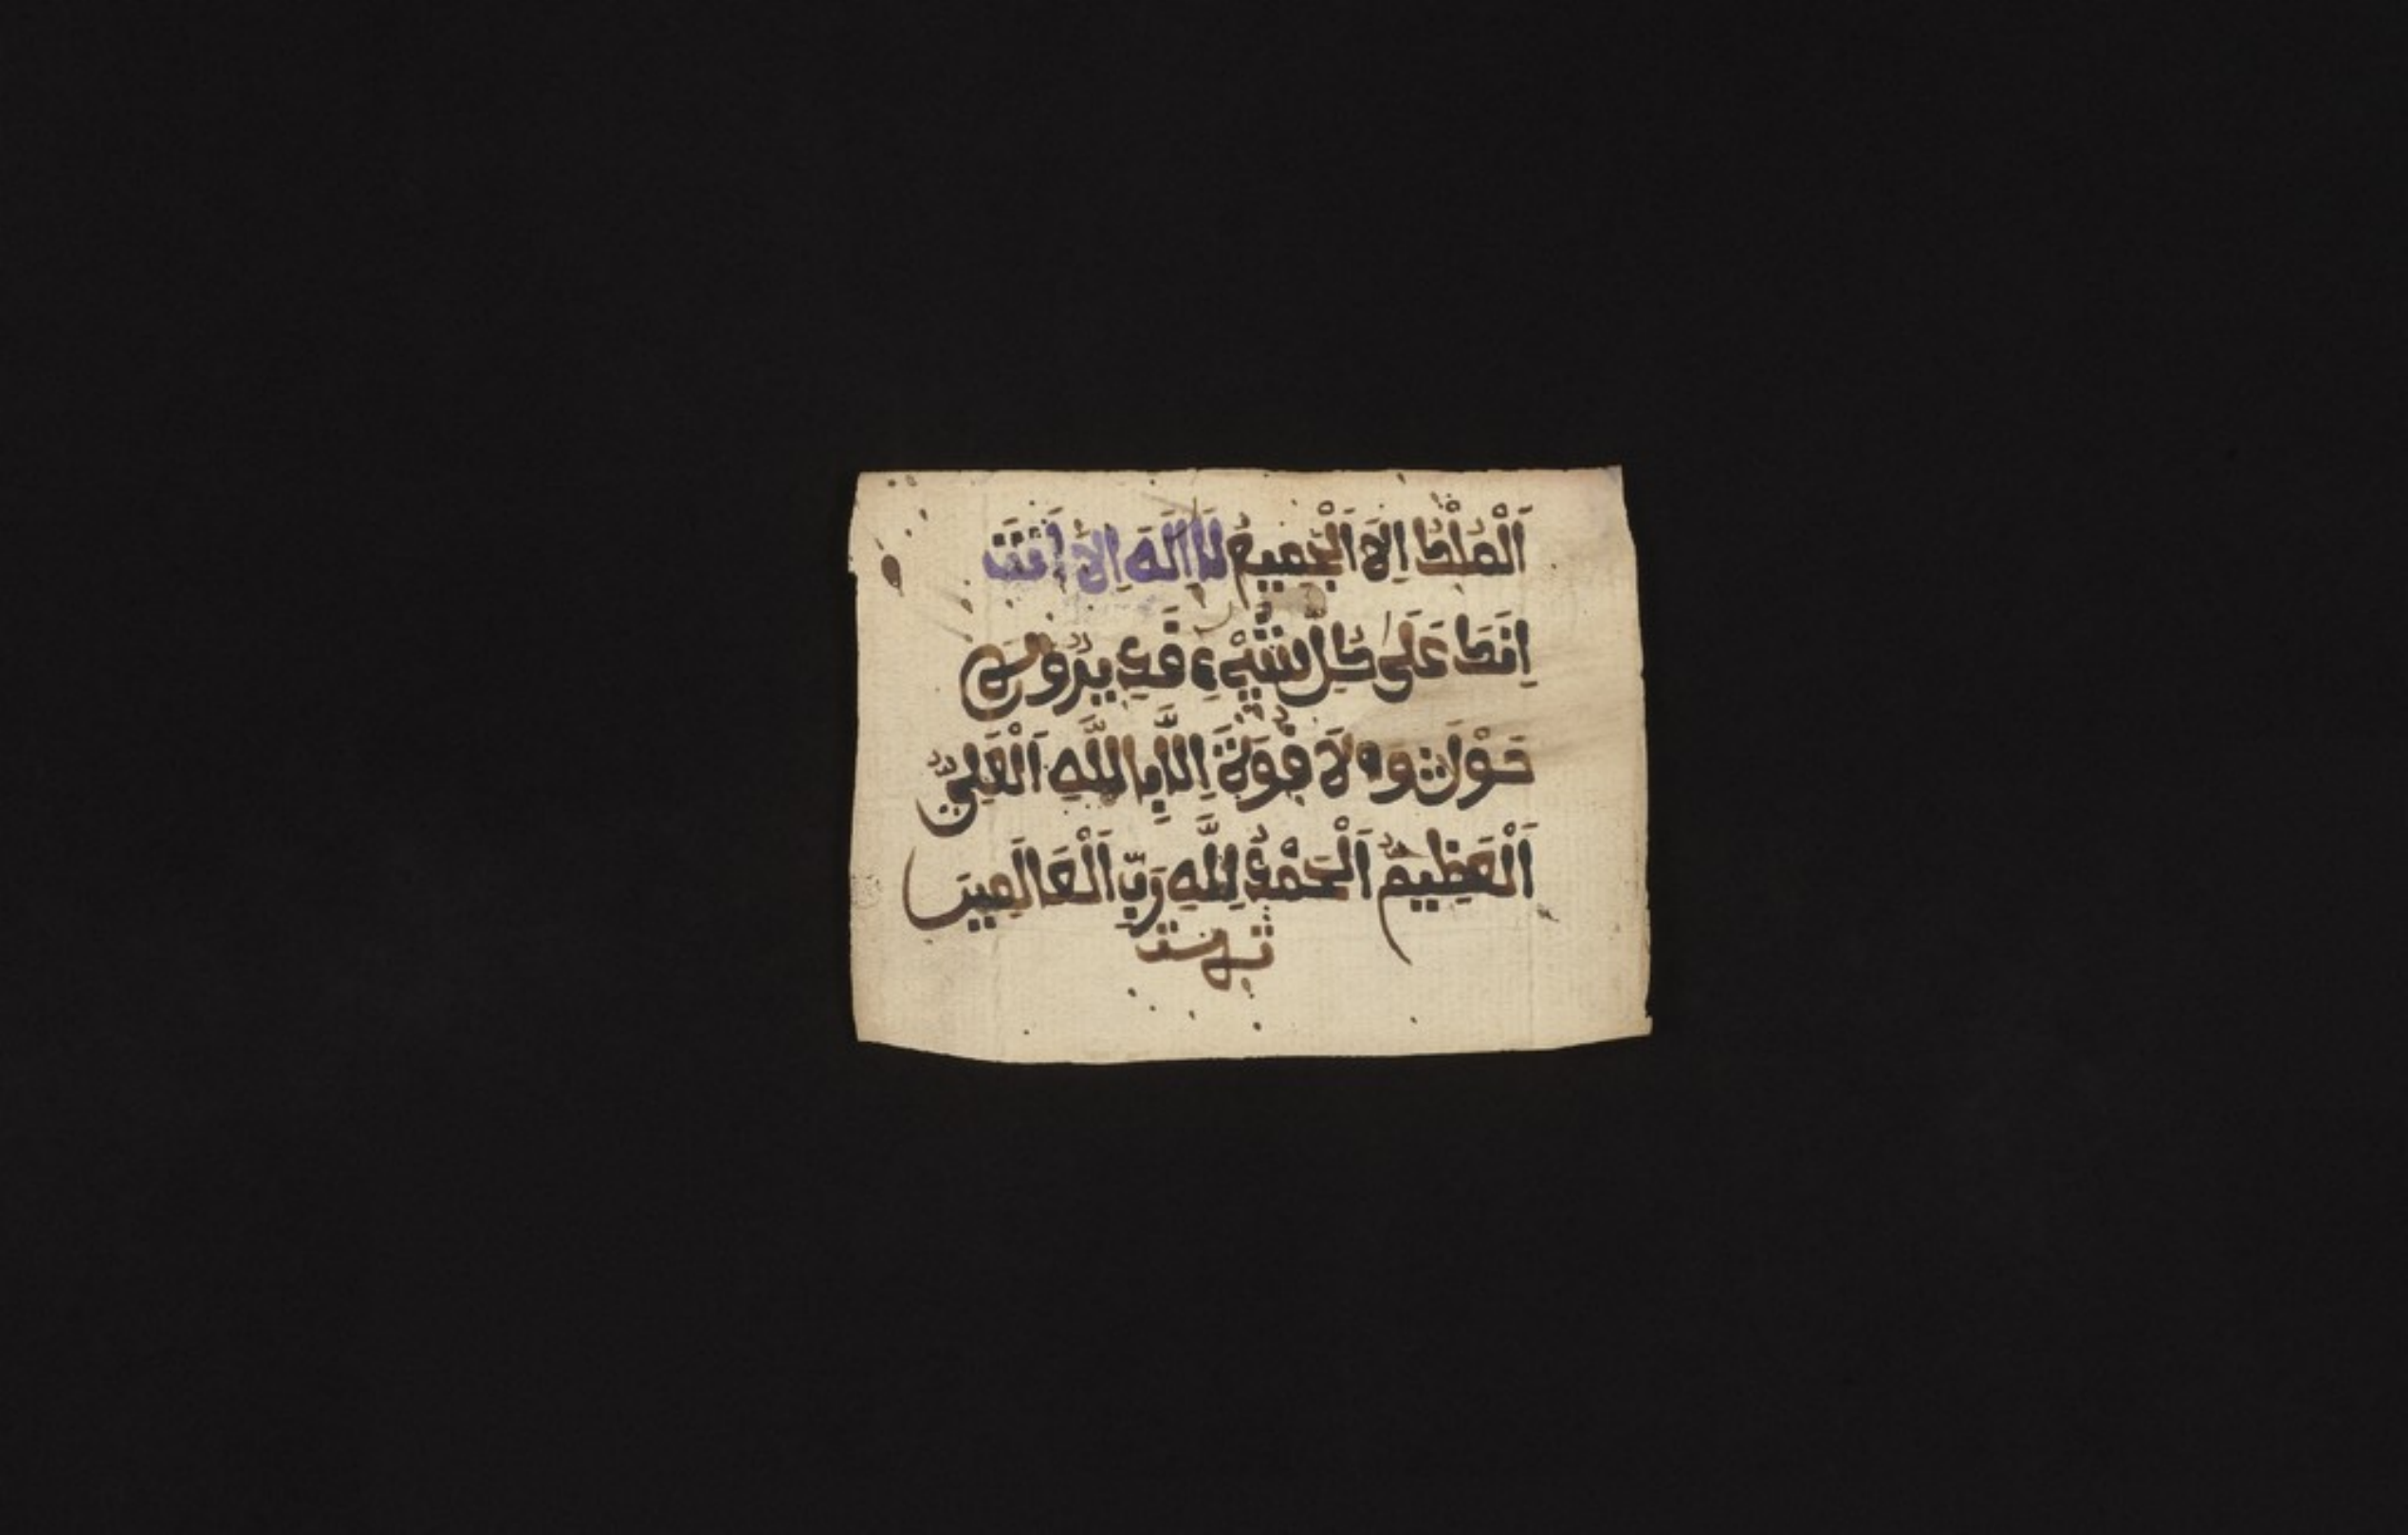 اَلْمُلْكُ اِلَا اَلْجَمِيعُ لَا اِلَهَ اِلَا اَنْتَ
اِنَكَ عَلَى كُلِّ شَيْءٍ قَدِيرٌ وَلَا
حَوْلَ وَلَا قُوَةَ اِلَّا بِاللَّهِ اَلْعَلِيُّ
اَلْعَظِيمُ اَلْحَمْدُ لِلَّهِ رَبِّ اَلْعَالَمِينَ
تمت